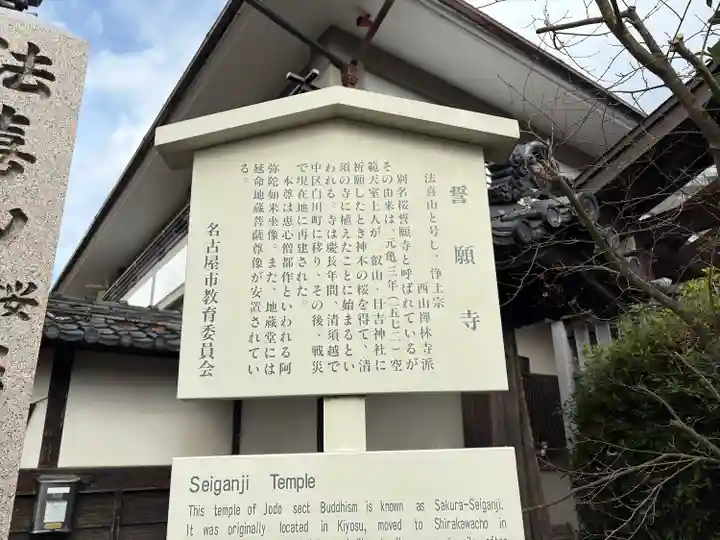 法喜山桜
誓願寺
法喜山と号し、浄土宗 西山禅林寺派
別名桜誓願寺と呼ばれているが
その由来は、元亀三年(一五七二)空
範天室上人が 叡山・日吉神社に
祈願したとき神木の桜を得て、清
須の寺に植えたことに始まるとい
われる。寺は慶長年間、清須越で
中区白川町に移り、その後、戦災
で現在地に再建された。
本尊は恵心僧都作といわれる阿
弥陀如来坐像。また、地蔵堂には
延命地蔵菩薩尊像が安置されてい
る。
名古屋市教育委員会
Seiganji Temple
This temple of Jodo sect Buddhism is known as Sakura-Seiganji.
It was originally located in Kiyosu, moved to Shirakawacho in